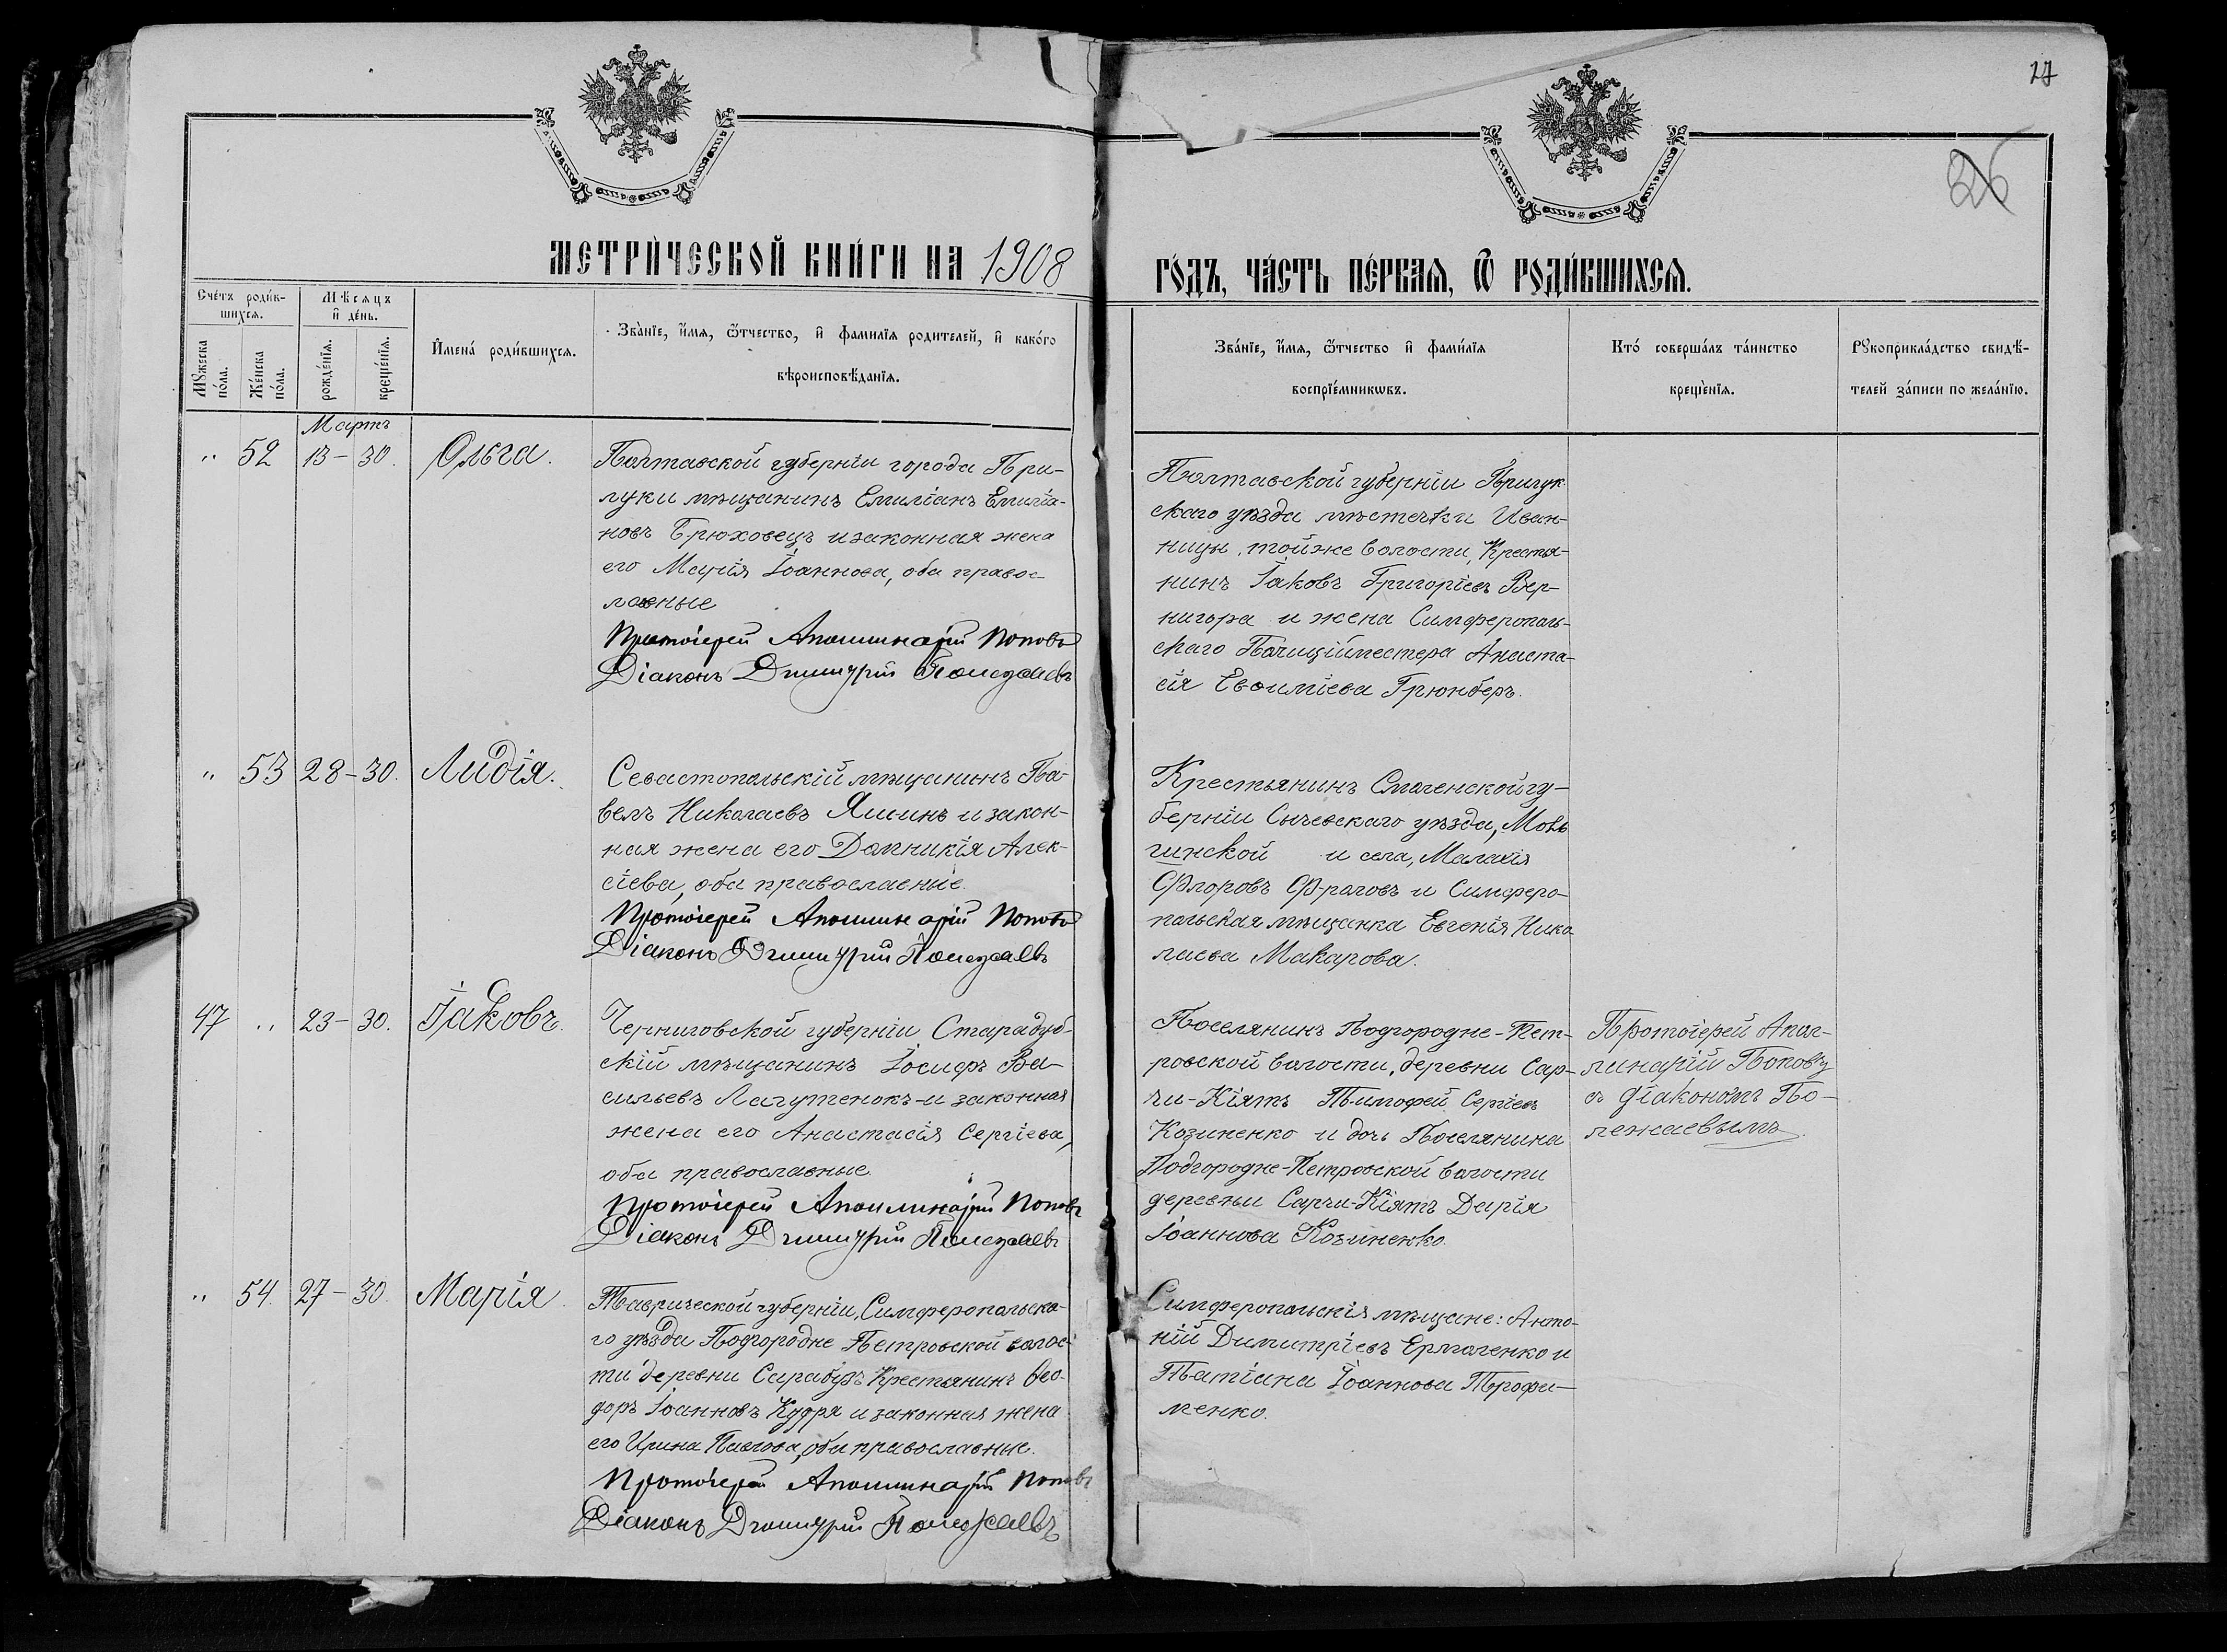 27
26
МЕТРИ́ЧЕСКОЙ КНИ́ГИ НА 1908
ГО́ДЪ, ЧА́СТЬ ПЕ́РВАЯ, Ѿ РОДИ́ВШИХСЯ.
Сче́тъ роди́в-
шихся.
Мѣ́сяцъ
и де́нь.
Му́жеска
по́ла.
Же́нска
по́ла.
рожде́нїя.
креще́нїя.
Имена́ роди́вшихся.
Зва́нїе, и́мя, ѻ́тчество, и фамилїя родителей, и како́го
вѣроисповѣ́данїя.
Зва́нїе, и́мя, ѻ́тчество и фами́лїя
воспрїе́мникѡвъ.
Кто́ соверша́лъ та́инство
креще́нїя.
Рꙋкоприкла́дство свидѣ́-
телей за́писи по жела́нїю.
Мартъ
" 52 13 - 30. Ольга.
Полтавской губерніи города При-
луки мѣщанинъ Емиліанъ Емилiа-
новъ Брюховецъ и законная жена
его Марія Іоаннова, оба правос-
лавные
Протоіерей Аполлинарій Поповъ
Діаконъ Димитрій Полежаевъ
Полтавской губерніи Прилук-
скаго уѣзда мѣстечка Иван-
ницы, тойже волости, Крестья-
нинъ Іаковъ Григоріевъ Вер-
нигора и жена Симферополь-
скаго Полиційместера Анаста-
сія Евѳиміева Грюнберъ.
" 53 28 - 30. Лидія.
Севастопольскій мѣщанинъ Па-
велъ Николаевъ Яшинъ и закон-
ная жена его Домникія Алек-
сіева, оба православные.
Протоіерей Аполлинарій Поповъ
Діаконъ Димитрій Полежаевъ
Крестьянинъ Смоленской гу-
берніи Сычевскаго уѣзда,
и села, Малахія
Флоровъ Фроловъ и Симферо-
польская мѣщанка Евгенія Нико-
лаева Макарова.
47 " 23 - 30. Іаковъ.
Черниговской губерніи Старадуб-
скій мѣщанинъ Іосифъ Ва-
сильевъ Лагутенокъ и законная
жена его Анастасія Сергіева,
оба православные.
Протоіерей Аполлинарій Поповъ
Діаконъ Димитрій Полежаевъ
Поселянинъ Подгородне-Пет-
ровской волости, деревни Сар-
чи-Кіятъ Тимофей Сергіевъ
Козиненко и дочь Поселянина
Подгородне-Петровской волости
деревни Сарчи-Кіятъ Дарія
Іоаннова Козиненко.
Протоіерей Апол-
линарій Поповъ
съ діакономъ По-
лежаевымъ.
" 54. 27 - 30. Марія.
Таврической губерніи, Симферопольска-
го уѣзда Подгородне Петровской волос-
ти деревни Сарабузъ Крестьянинъ Ѳео-
доръ Іоанновъ Кудря и законная жена
его Ирина Павлова, оба православные.
Протоіерей Аполлинарій Поповъ
Діаконъ Димитрій Полежаевъ
Симферопольскія мѣщане: Анто-
ній Димитріевъ Ермоленко и
Татіана Іоаннова Трофи-
менко.